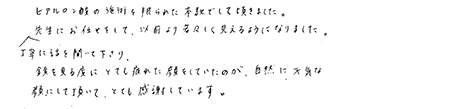 ヒアルロン酸の施術を限られた本数でして頂きました。
先生にお任せをして、以前より若々しく見えるようになりました。
丁寧に話を聞いて下さり、
鏡を見る度にとても疲れた顔をしていたのが、自然に元気な
顔にして頂いて、とても感謝しています。